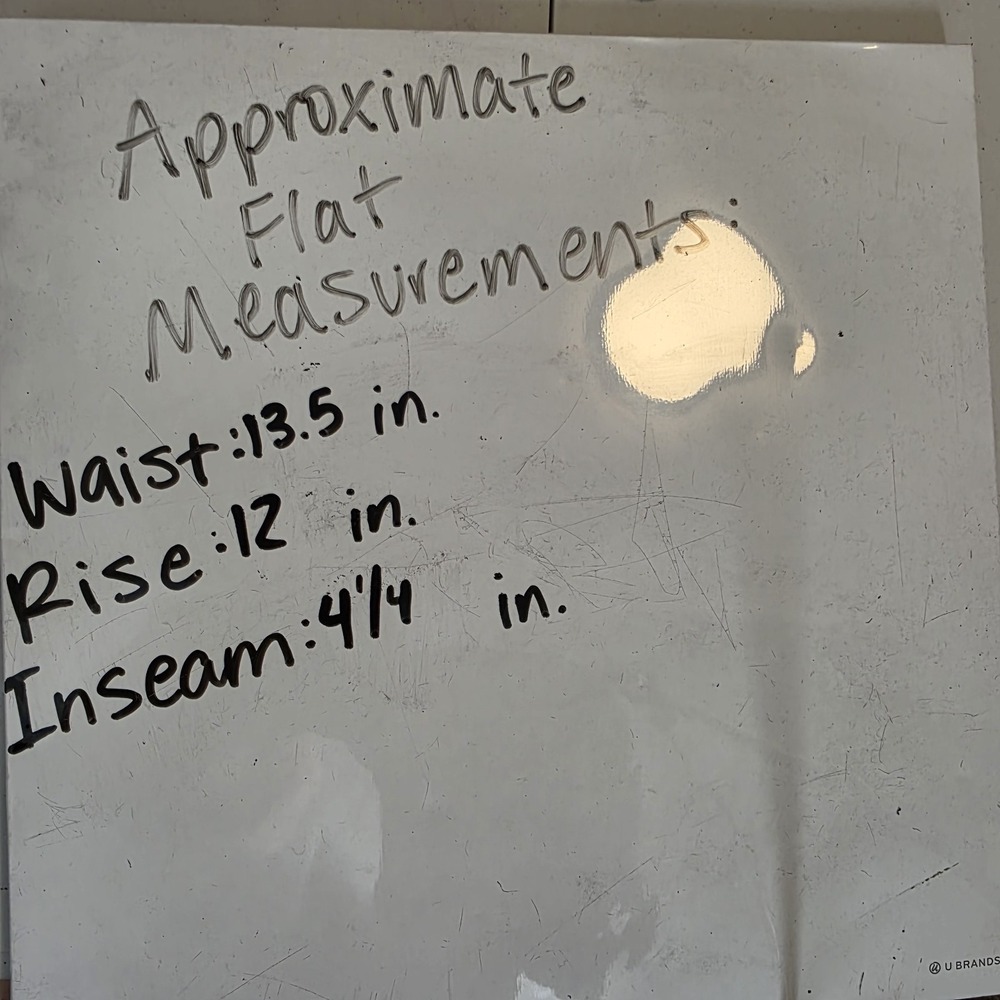 Approximate
Flat
Measurements:
Waist:13.5 in.
Rise:12 in.
Inseam:4 1/4 in.
U BRANDS